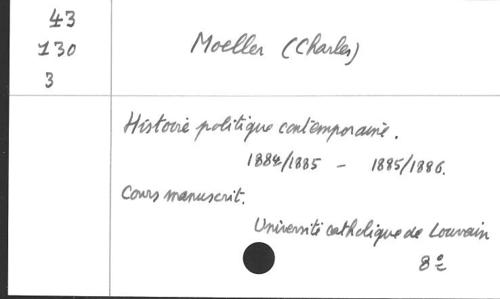 43
130
3
Moeller (Charles)
Histoire politique contemporaine.
1884/1885 - 1885/1886.
Cours manuscrit.
Université catholique de Louvain
8°